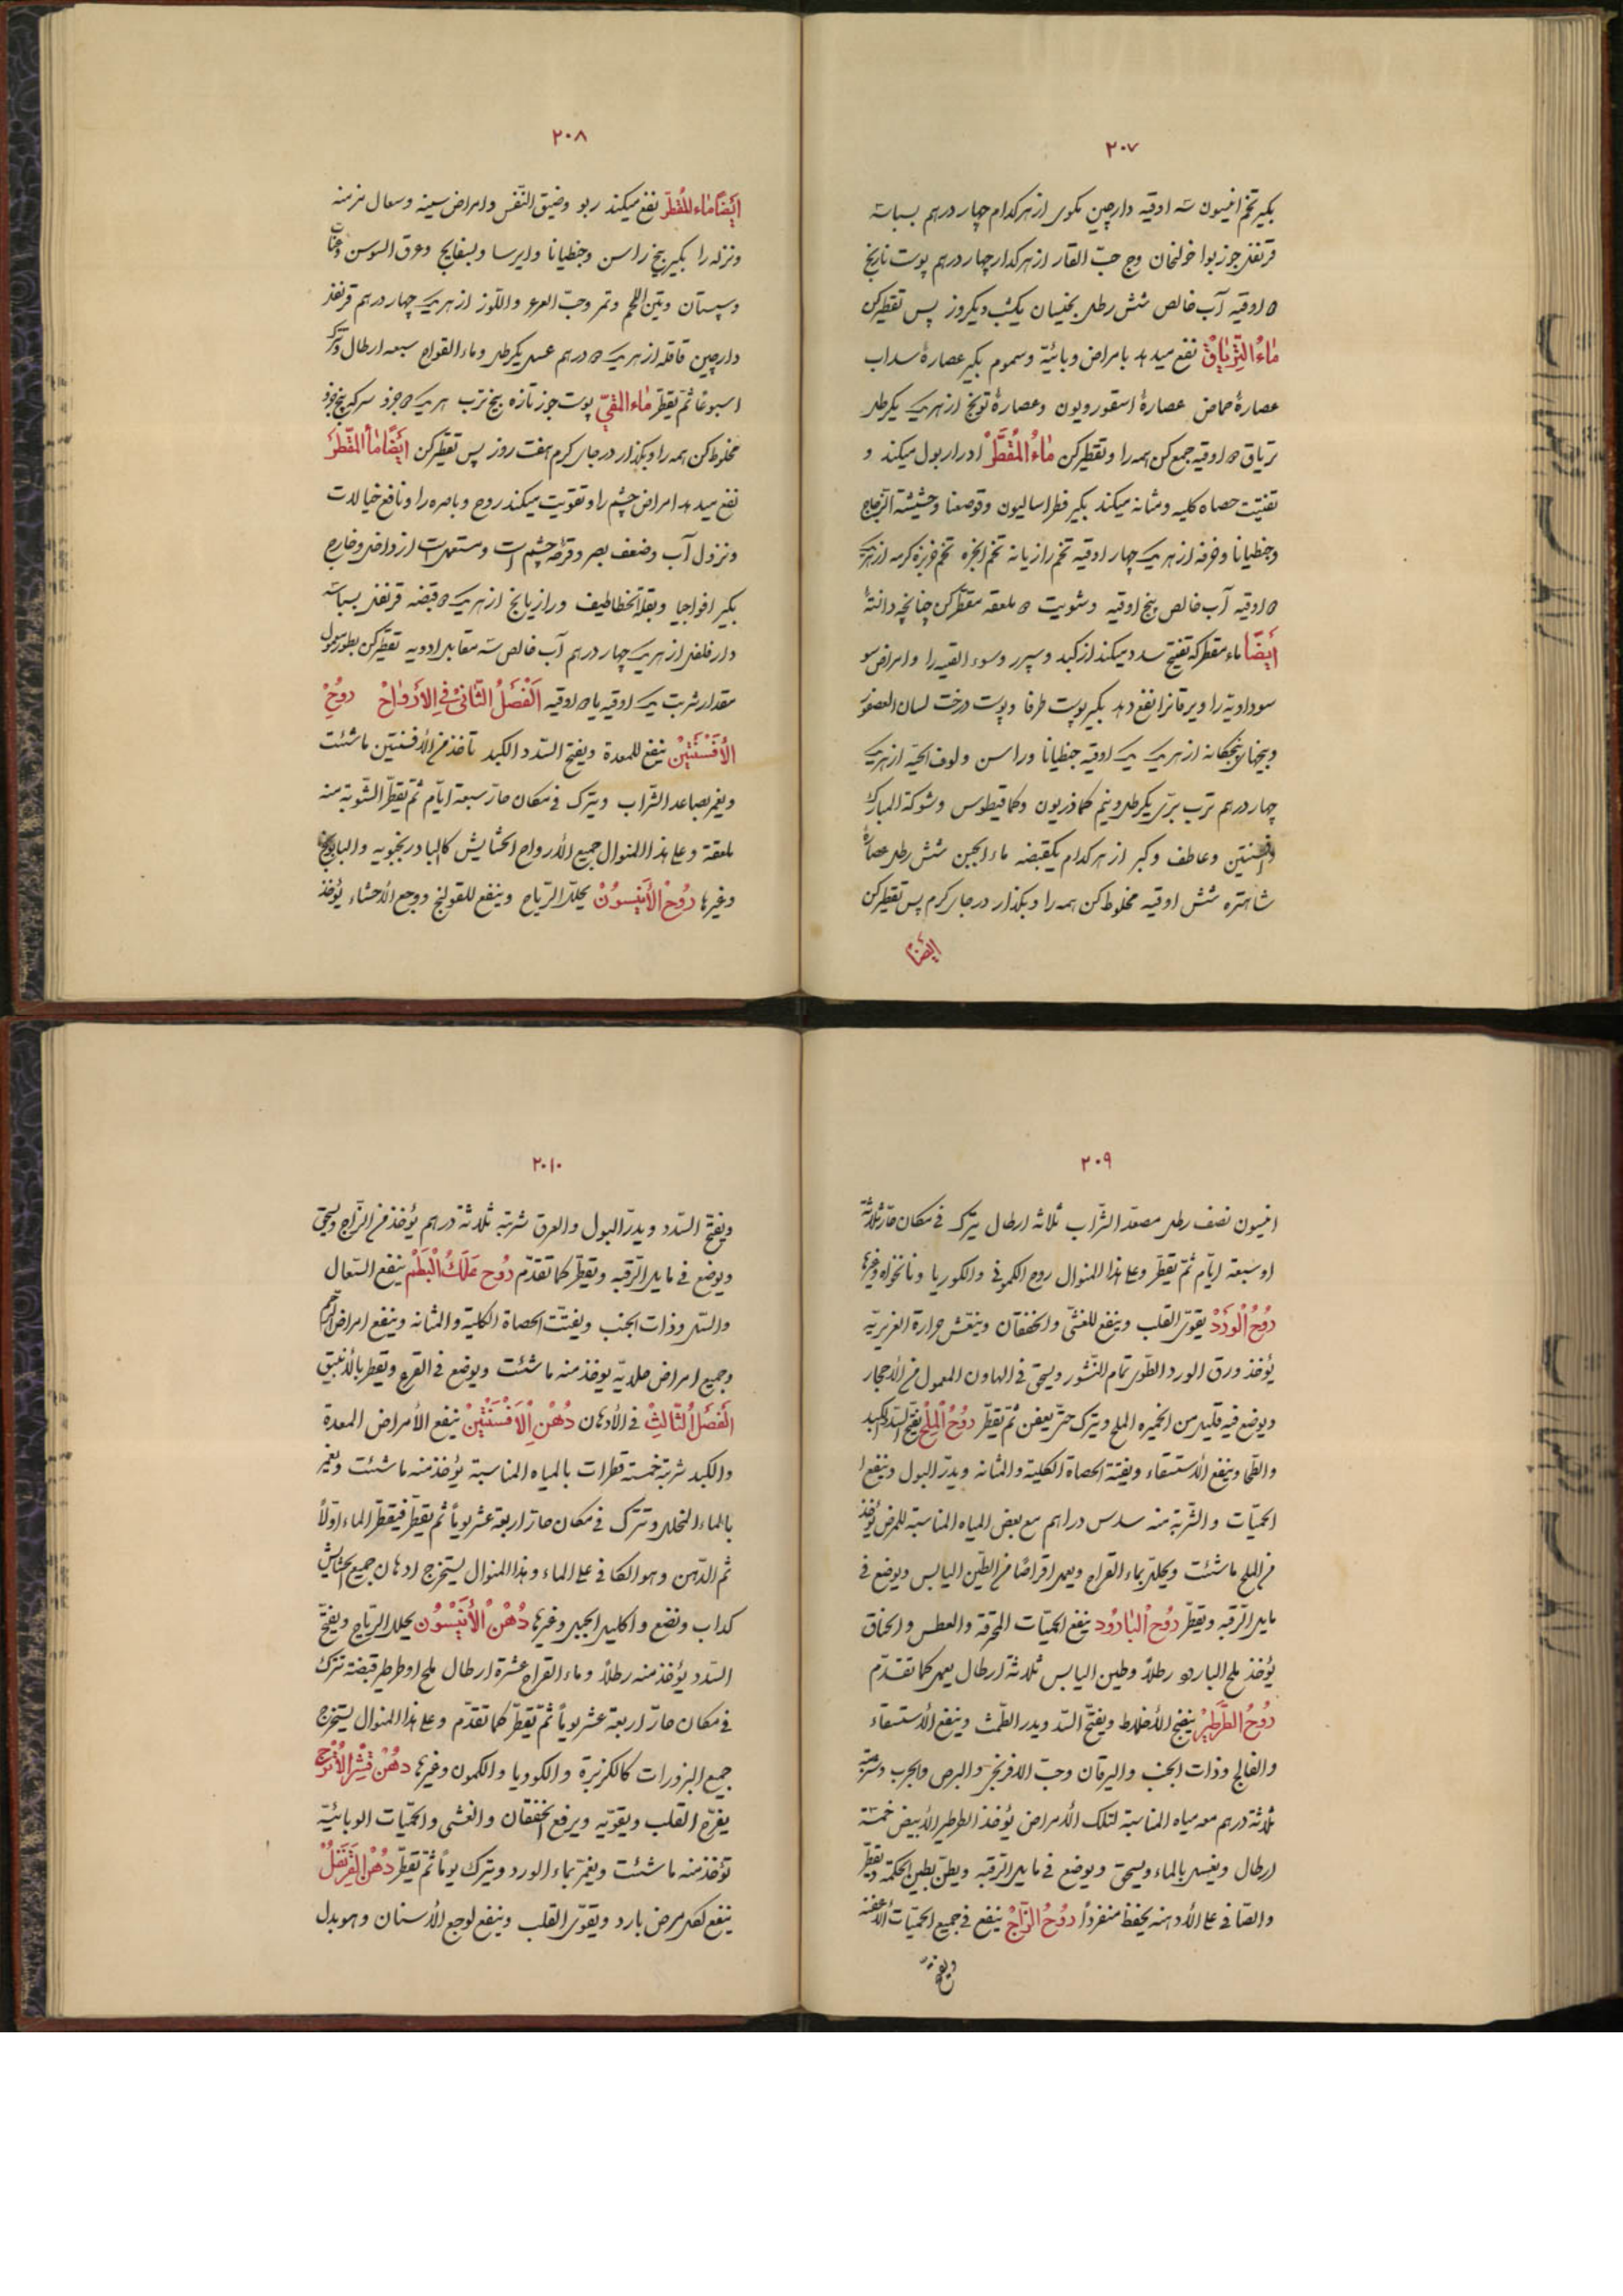 ۲۰۷
بکیر تخم انیسون سه اوقیه دارچین مکوی از هر کدام چهار درهم بسباسه
قرنفل جوزبوا خولنجان وج حب القار از هر کدام چهار درهم پوست نارنج
۵ اوقیه آب خالص شش رطل بخیسان یکشب و یکروز پس تقطیر کن
ماء التریاق نفع میدهد بامراض وبائیّة وسموم بکیر عصارهٔ سداب
عصارهٔ حماض عصارهٔ اسقوردیون وعصارهٔ از هریک یکرطل
تریاق ۵ اوقیه جمع کن همه را وتقطیر کن ماء المقطّر ادرار بول میکند و
تفتیت حصاه کلیه ومثانه میکند بکیر فطراسالیون وحشیشة الزجاج
وجنطیانا وخرفه از هریک چهار اوقیه تخم رازیانه تخم انجره تخم خربزه کرمه از هریک
۵ اوقیه آب خالص پنج اوقیه وشوبت ۵ ملعقه مقطّر کن چنانچه دانستهٔ
أیضًا ماء مقطر که تفتیح سدد میکند از کبد وسپرز وسوء القنیه را وامراض سو
سوداویة را ویرقانرا نفع دهد بکیر پوست طرفا وپوست درخت لسان العصفور
وبیخهای پنجکانه از هریک یک اوقیه جنطیانا وراسن ولوف الحیّه از هریک
چهار درهم ترب برّی یکرطل ونیم کماذریون وکمافیطوس وشوکة المبارک
افسنتین وکبر از هر کدام یکقبضه ماء الجبن شش رطل عصارهٔ
شاهتره شش اوقیه مخلوط کن همه را وبکذار در جای کرم پس تقطیر کن
ایضًا م
۲۰۸
ایضًا ماء المقطّر نفع میکند ربو وضیق النّفس وامراض سینه وسعال مزمنه
ونزله را بکیر بیخ راسن وجنطیانا وایرسا وبسفایج وعرق السوس وعناب
وسپستان وتین اللحم وتمر وحبّ القرع واللّوز از هریک چهار درهم قرنفل
دارچین قاقله از هریک ۵ درهم عسل یکرطل وماء القراح سبعه ارطال وترک
اسبوعًا ثمّ یقطّر ماء المقیّ پوست جوز تازه بیخ ترب هریک ۵ جزو سرکه پنج جزو
مخلوط کن همه را وبکذار در جای کرم هفت روز پس تقطیر کن ایضًا ماء المقطر
نفع میدهد امراض چشم را وتقویت میکند روح وباصره را ونافع خیالات
ونزول آب وضعف بصر وقرحه چشم است ومستعمل است از داخل وخارج
بکیر وبقلة الخطاطیف ورازیانج از هریک ۵ قبضه قرنفل بسباسه
دارفلفل از هریک چهار درهم آب خالص سه مقابل ادویه تقطیر کن بطور معمول
مقدار شربت یک اوقیه یا ۵ اوقیه الفصل الثانی فی الأرواح روح
الأفسنتین ینفع للمعدة ویفتح السّدد الکبد تأخذ من الأفسنتین ماشئت
ویغمر بصاعد الشّراب ویترک فی مکان حارّ سبعة ایّام ثمّ یقطّر الشّربة منه
ملعقة وعلی هذا المنوال جمیع الأرواح الحشایش کالبادرنجبویه والبابونج
وغیرها روح الأنیسون یحلّل الرّیاح وینفع للقولنج ووجع الأحشاء یؤخذ
۲۰۹
انیسون نصف رطل مصعّد الشّراب ثلاثه ارطال یترک فی مکان حارّ ثلاثة
او سبعة ایّام ثمّ یقطّر وعلی هذا المنوال روح الکمون والکوریا ونانخواه وغیرها
روح الورد یقوّی القلب وینفع للغشی والخفقان وینعّش حرارة الغریزیّه
یؤخذ ورق الورد الطّری تمام النّشور ویسحق فی الهاون المعمول من الأحجار
ویوضع فیه قلیل من الخمیره الملح ویترک حتّی یعفن ثمّ یقطّر روح الملح یفتّح السّدد الکبد
والطّحال وینفع الأستسقاء ویفتّت الحصاة الکلیة والمثانه ویدرّ البول وینفع
الحمیّات والشّربة منه سدس دراهم مع بعض المیاه المناسبة للمرض یؤخذ
من الملح ماشئت ویحلّل بماء القراح ویعمل اقراصًا من الطّین الیابس ویوضع فی
مایل الرّقبه ویقطّر روح البارود ینفع الحمیّات المحرقة والعطس والخناق
یؤخذ ملح البارود رطلاً وطین الیابس ثلاثة ارطال یعمل کما تقدّم
روح الطّرطیر ینضج الأخلاط ویفتّح السّدد ویدر الطّمث وینفع الأستسقاء
والفالج وذات الجنب والیرقان وحبّ الافرنجی والبرص والجرب وشربته
ثلاثة درهم مع میاه المناسبة لتلک الأمراض یؤخذ الطرطیر الأبیض خمسة
ارطال ویغسل بالماء ویسحق ویوضع فی مایل الرّقبه ویطیّن بطین الحکمة ویقطّر
والصّافی علی الأدهنه یحفظ منفرداً روح الزّاج ینفع فی جمیع الحمیّات العفنه
ویفتّح
۲۰۱۰
ویفتّح السّدد ویدرّ البول والعرق شربته ثلاثة درهم یؤخذ من الزّاج ویسحق
ویوضع فی مایل الرّقبه ویقطّر کما تقدّم روح علک البطم ینفع السّعال
والسّل وذات الجنب ویفتّت الحصاة الکلیة والمثانه وینفع امراض الرّحم
وجمیع امراض یؤخذ منه ماشئت ویوضع فی القرع ویقطر بالأنبیق
الفصل الثالث فی الأدهان دهن الافسنتین ینفع الأمراض المعدة
والکبد شربته خمسة قطرات بالمیاه المناسبة یؤخذ منه ماشئت ویغمر
بالماء النخل ویترک فی مکان حارّ اربعة عشر یوماً ثم یقطّر فیقطّر الماء اوّلاً
ثم الدّهن وهو الکافی علی الماء وبهذا المنوال یستخرج ادهان جمیع الحشایش
کسداب ونعنع واکلیل الجبل وغیرها دهن الأنیسون یحلل الرّیاح ویفتّح
السّدد یؤخذ منه رطلاً وماء القراح عشرة ارطال ملح او طرطیر قبضة تترک
فی مکان حارّ اربعة عشر یوماً ثمّ تقطّر کما تقدّم وعلی هذا المنوال یستخرج
جمیع البزورات کالکزبرة والکوریا والکمون وغیرها دهن قشر الأترج
یفرّح القلب ویقوّیه ویرفع الخفقان والغشی والحمیّات الوبائیّه
تؤخذ منه ماشئت ویغمر بماء الورد ویترک یوماً ثمّ تقطّر دهن القرنفل
ینفع لکل مرض بارد ویقوّی القلب وینفع لوجع الأسنان وهو بدل